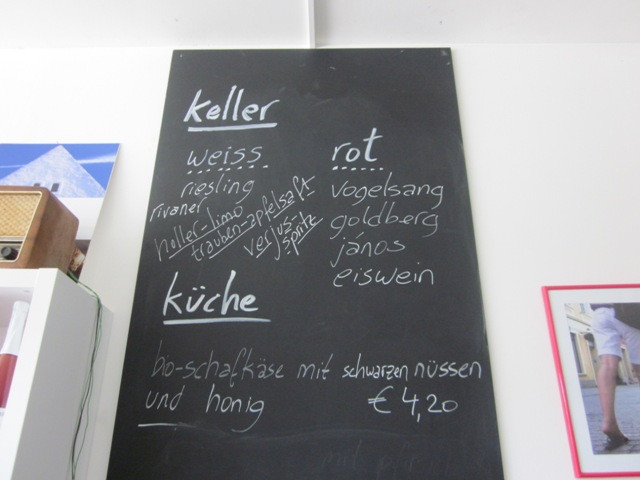 keller
weiss
riesling
rivaner
holler-limo
trauben-apfelsaft
verjus-
spritz
rot
vogelsang
goldberg
jános
eiswein
küche
bio-schafkäse mit schwarzen nüssen
und honig € 4,20